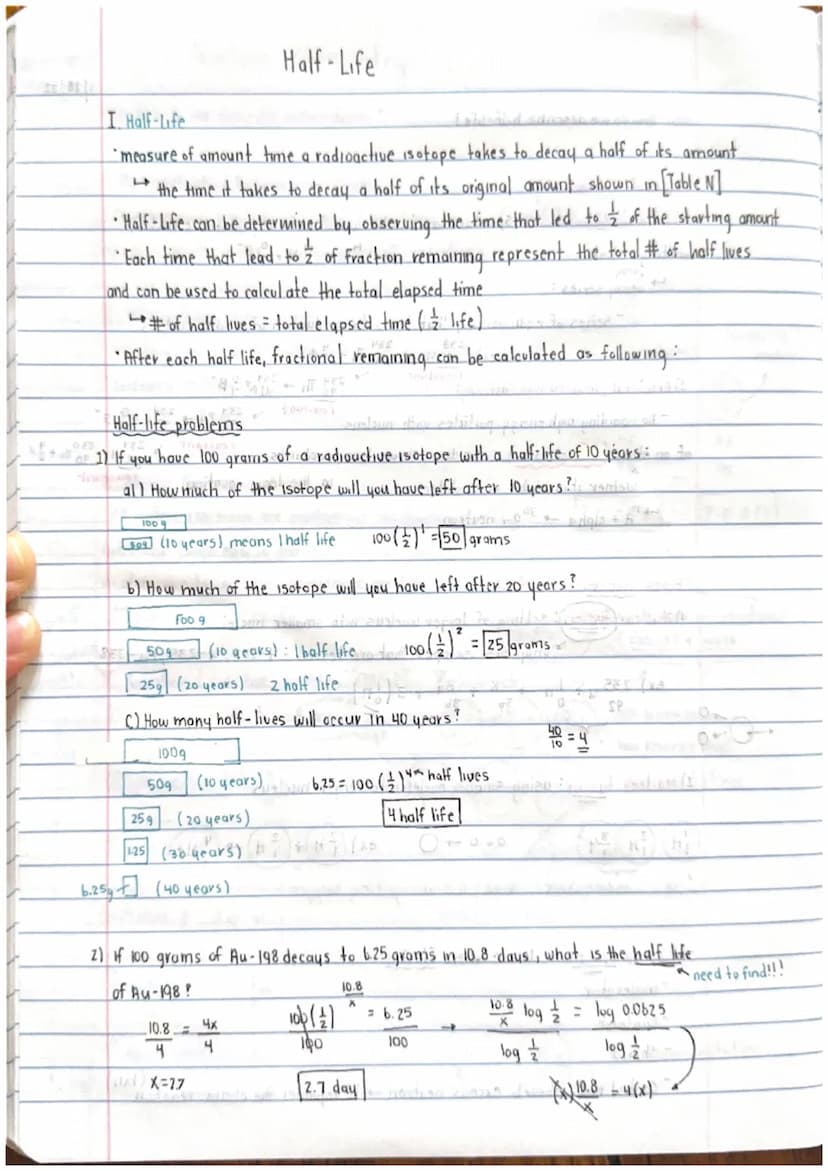 Half-Life
I. Half-Life
• measure of amount time a radioactive isotope takes to decay a half of its amount
↳ the time it takes to decay a half of its original amount shown in [Table N]
• Half-Life can be determined by observing the time that led to 1/2 of the starting amount
• Each time that lead to 1/2 of fraction remaining represent the total # of half lives
and can be used to calculate the total elapsed time
↳ # of half lives = total elapsed time (1/2 life)
• After each half life, fractional remaining can be calculated as following:
Half-life problems
1) If you have 100 grams of a radioactive isotope with a half-life of 10 years:
a) How much of the isotope will you have left after 10 years?
100 g
50g (10 years) means 1 half life 100(1/2)^1 = 50 grams
b) How much of the isotope will you have left after 20 years?
100 g
50g (10 years) : 1 half-life 100(1/2)^2 = 25 grams
25g (20 years) 2 half life
C) How many half-lives will occur in 40 years? 40/10 = 4
100g
50g (10 years) 6.25 = 100(1/2)^4 half lives
25g (20 years) 4 half life
(30 years)
6.25g (40 years)
2) If 100 grams of Au-198 decays to 6.25 grams in 10.8 days, what is the half life
need to find!!!
of Au-198?
10.8/4 = 4x/4 100(1/2)^(10.8/x)/100 = 6.25/100 → 10.8/x log 1/2 / log 1/2 = log 0.0625 / log 1/2
x=2.7 2.7 day (x) 10.8/x = 4(x)